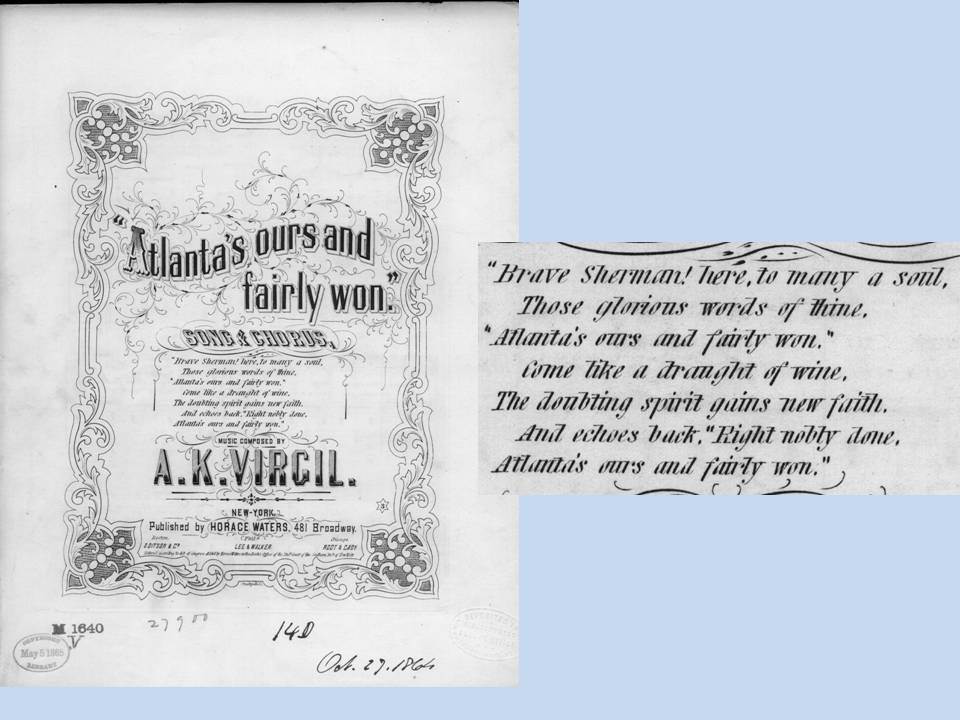 "Atlanta's ours and
fairly won."
SONG & CHORUS.
"Brave Sherman! here, to many a soul,
Those glorious words of thine,
"Atlanta's ours and fairly won."
Come like a draught of wine,
The doubting spirit gains new faith,
And echoes back, "Right nobly done,
Atlanta's ours and fairly won."
MUSIC COMPOSED BY
A. K. VIRGIL.
NEW-YORK.
Published by HORACE WATERS, 481 Broadway.
Boston. Phila. Chicago.
O. DITSON & Co. LEE & WALKER. ROOT & CADY.
M 1640
.V
2790
14D
COPYRIGHT
May 5 1865
LIBRARY
Oct. 27. 1864
"Brave Sherman! here, to many a soul,
Those glorious words of thine,
"Atlanta's ours and fairly won."
Come like a draught of wine,
The doubting spirit gains new faith,
And echoes back, "Right nobly done,
Atlanta's ours and fairly won."